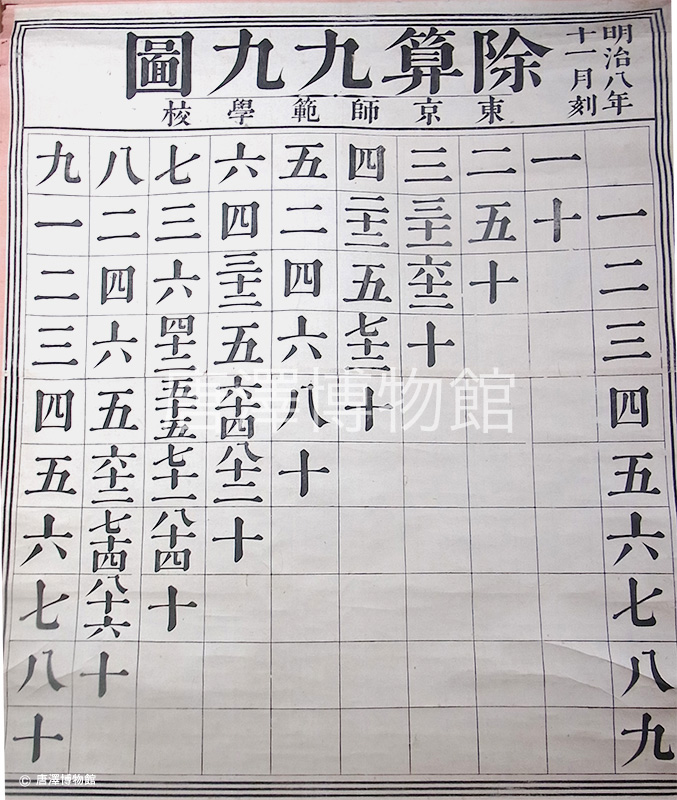 明治八年
十一月刻
除算九九圖
東京師範學校
一 二 三 四 五 六 七 八 九
一 十 五 三十一 二十二 二 四 三 二 一
二 十 六十二 五 四 三十二 六 四 二
三 十 七十二 六 五 四十二 六 三
四 十 八 六十四 五十五 五 四
五 十 八十二 七十一 六十二 五
六 十 八十四 七十四 六
七 十 八十六 七
八 十 八
九 十
唐澤博物館
© 唐澤博物館